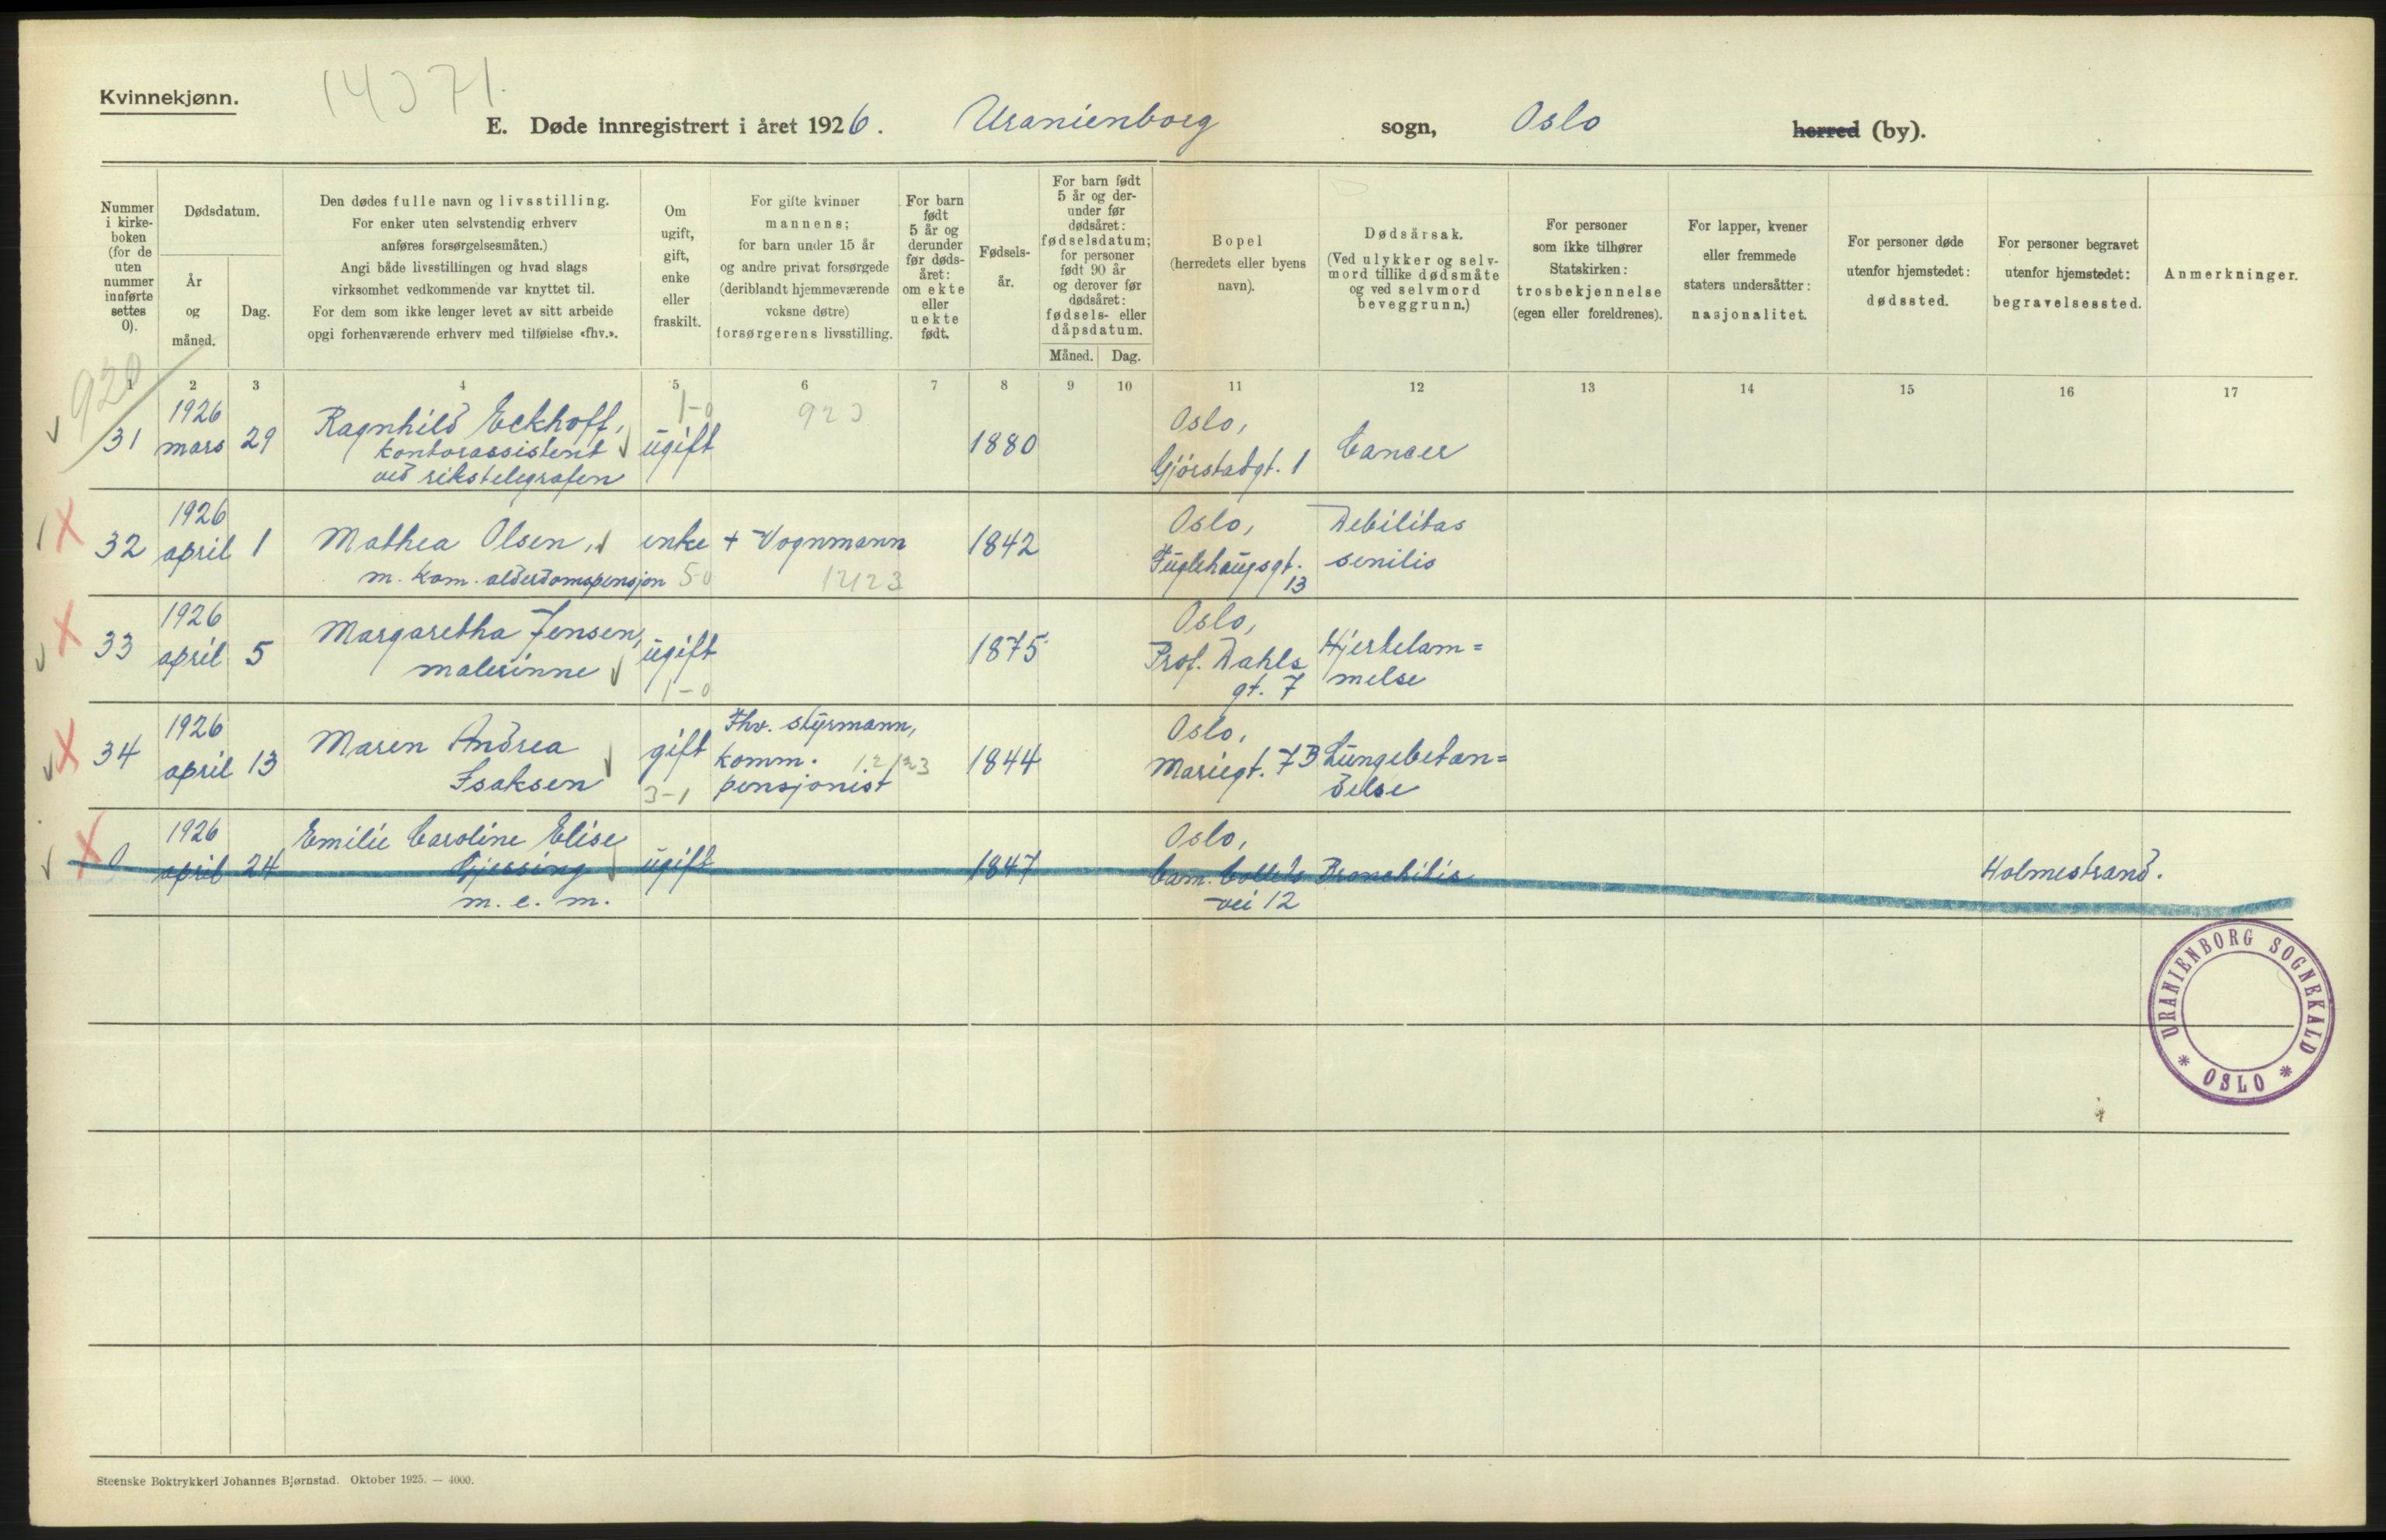 Kvinnekjønn.
14371.
E. Døde innregistrert i året 1926. Uranienborg sogn, Oslo herred (by).
Nummer i kirke- boken (for de uten nummer innførte settes 0).
Dødsdatum.
År og måned.
Dag.
Den dødes fulle navn og livsstilling.
For enker uten selvstendig erhverv
anføres forsørgelsesmåten.)
Angi både livsstillingen og hvad slags
virksomhet vedkommende var knyttet til.
For dem som ikke lenger levet av sitt arbeide
opgi forhenværende erhverv med tilføielse «fhv.».
Om
ugift,
gift,
enke
eller
fraskilt.
For gifte kvinner
mannens;
for barn under 15 år
og andre privat forsørgede
(deriblandt hjemmeværende
voksne døtre)
forsørgerens livsstilling.
For barn
født
5 år og
derunder
før døds-
året:
om ekte
eller
uekte
født.
Fødsels-
år.
For barn født
5 år og der-
under før
dødsåret:
fødselsdatum;
for personer
født 90 år
og derover før
dødsåret:
fødsels- eller
dåpsdatum.
Måned. Dag.
Bopel
(herredets eller byens
navn).
Dødsårsak.
(Ved ulykker og selv-
mord tillike dødsmåte
og ved selvmord
beveggrunn.)
For personer
som ikke tilhører
Statskirken:
trosbekjennelse
(egen eller foreldrenes).
For lapper, kvener
eller fremmede
staters undersåtter:
nasjonalitet.
For personer døde
utenfor hjemstedet:
dødssted.
For personer begravet
utenfor hjemstedet:
begravelsessted.
Anmerkninger.
1 2 3 4 5 6 7 8 9 10 11 12 13 14 15 16 17
920
31 1926 mars 29 Ragnhild Eckhoff, kontorassistent ved rikstelegrafen ugift 1-0 923 1880 Oslo, Gjørstadgt. 1 Cancer
32 1926 april 1 Mathea Olsen, m. kom. alderdomspensjon enke 5-0 + Vognmann 12123 1842 Oslo, Fuglehaugsgt. 13 Debilitas senilis
33 1926 april 5 Margaretha Jensen, malerinne ugift 1-0 1875 Oslo, Prof. Dahls gt. 7 Hjertelam= melse
34 1926 april 13 Maren Andrea Isaksen gift 3-1 Fhv. styrmann, komm. pensjonist 12123 1844 Oslo, Mariegt. 73 Lungebetæn= delse
0 1926 april 24 Emilie Caroline Elise Gjessing m. e. m. ugift 1847 Oslo, Cam. Colletts vei 12 Bronchitis Holmestrand.
URANIENBORG SOGNEKALD
* OSLO *
Steenske Boktrykkeri Johannes Bjørnstad. Oktober 1925. — 4000.